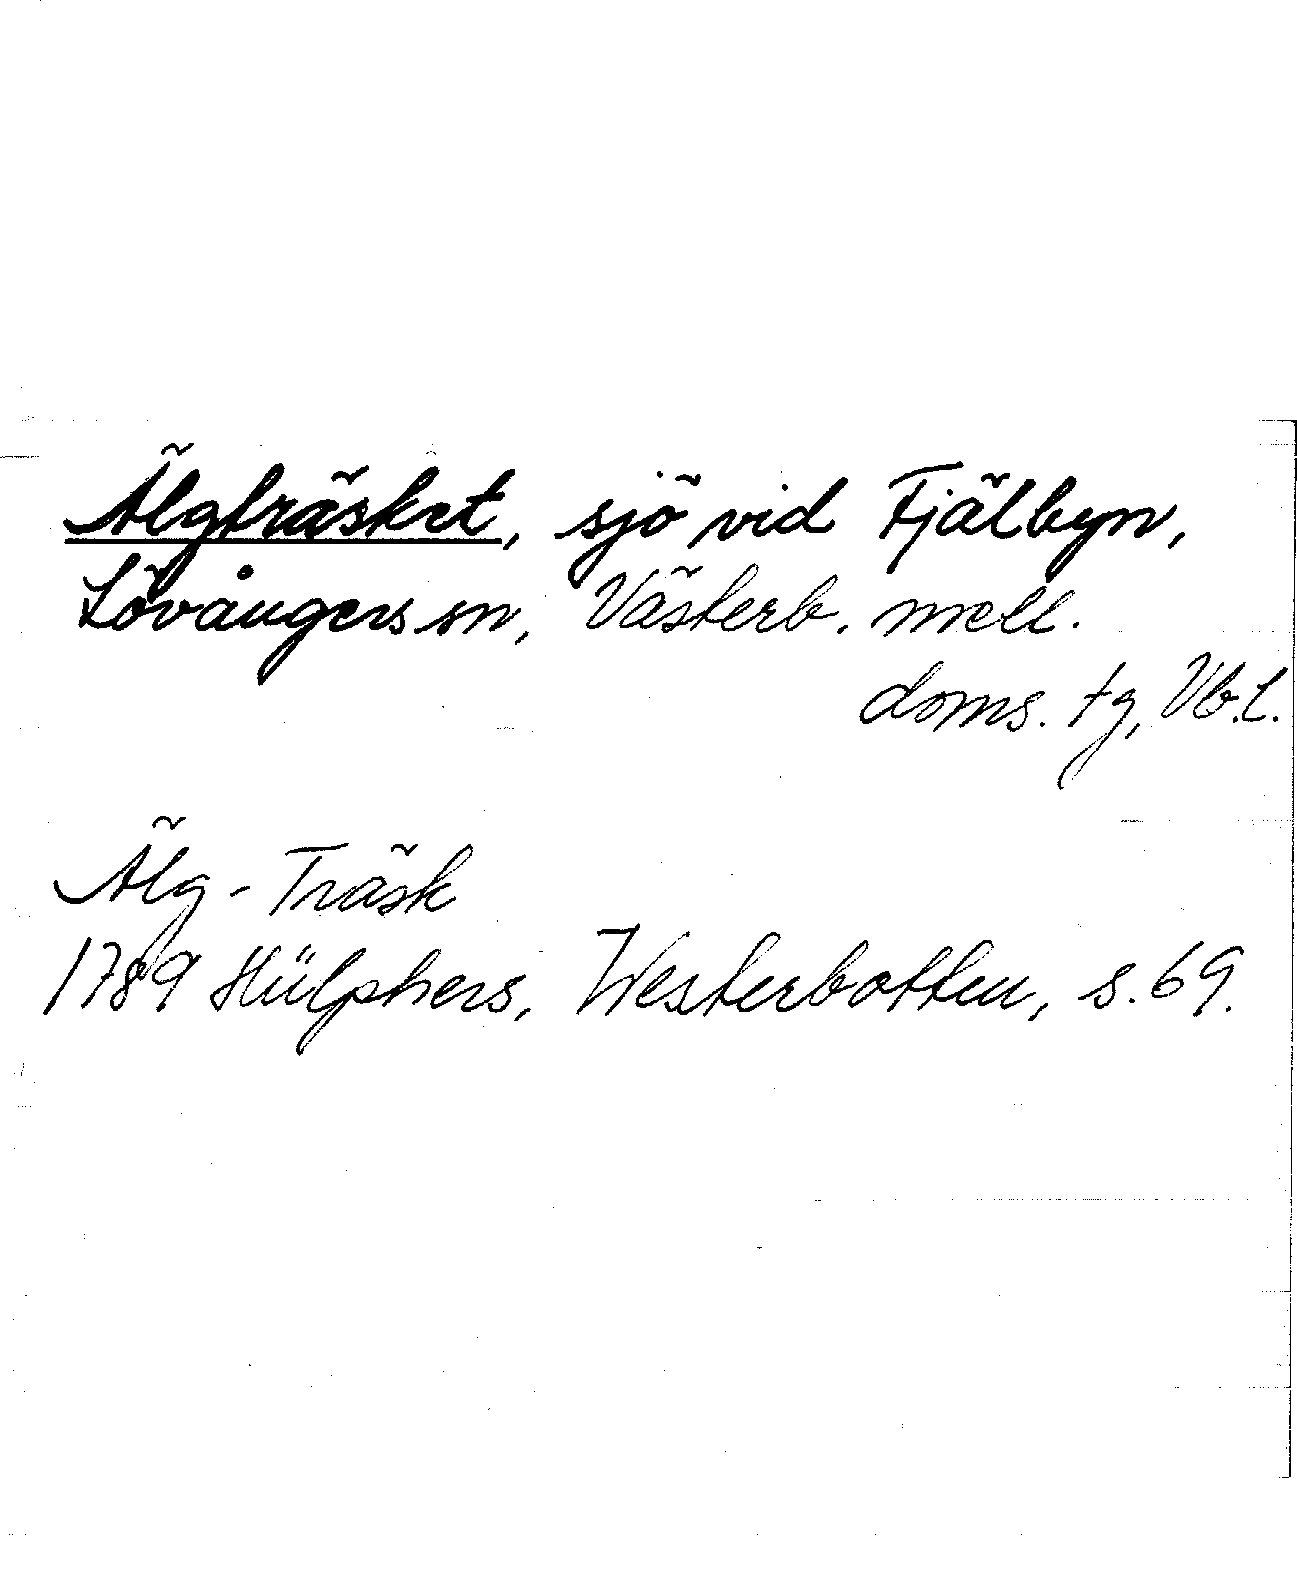 Älgträsket, sjö vid Fjälbyn,
Lövångers sn, Västerb. mell.
doms. tg, Vb.l.
Älg-Träsk
1789 Hülphers, Westerbotten, s. 69.